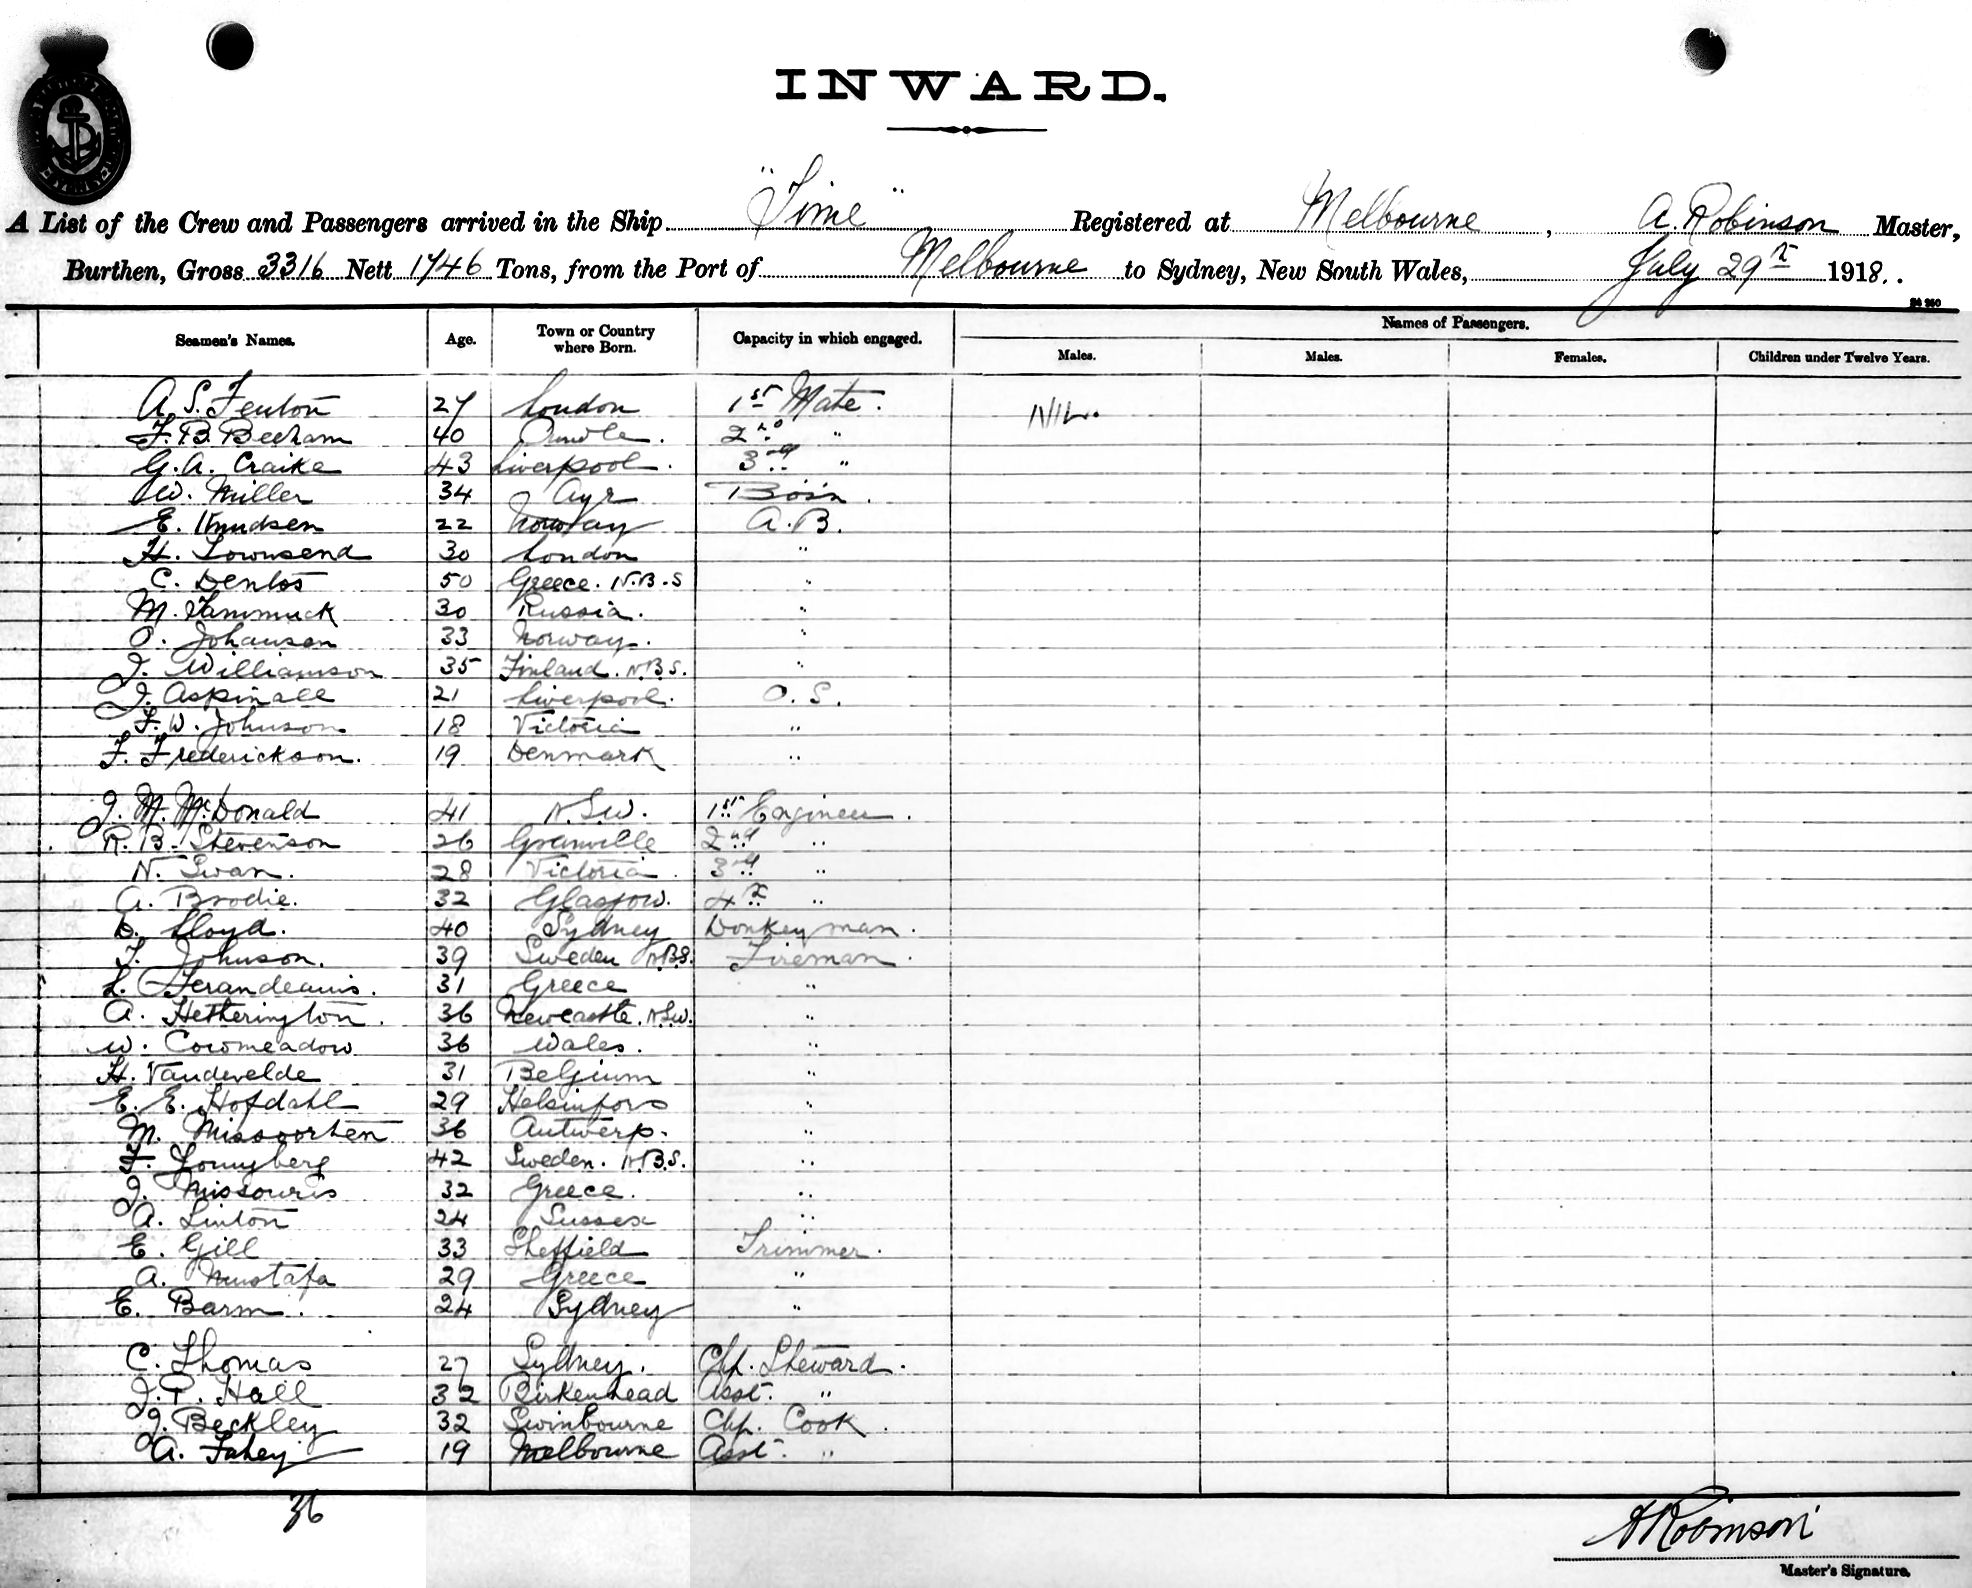 INWARD.
A List of the Crew and Passengers arrived in the Ship "Time" Registered at Melbourne, A. Robinson Master,
Burthen, Gross 3316 Nett 1746 Tons, from the Port of Melbourne to Sydney, New South Wales, July 29th 1918.
Seamen's Names. Age. Town or Country where Born. Capacity in which engaged. Names of Passengers.
Males. Males. Females. Children under Twelve Years.
A. S. Fenton 27 London 1st Mate. NIL.
F. B. Beecham 40 2nd "
G. A. Craike 43 Liverpool. 3rd "
W. Miller 34 Ayr Bosn.
E. Knudsen 22 Norway A. B.
H. Townsend 30 London "
C. Dentos 50 Greece. N.B.S "
M. Tammuck 30 Russia. "
O. Johansen 33 Norway. "
J. Williamson 35 Finland. N.B.S. "
J. Aspinall 21 Liverpool. O. S.
F. W. Johnson 18 Victoria "
F. Frederickson. 19 Denmark "
J. M. McDonald 41 N.S.W. 1st Engineer.
R. B. Stevenson 26 Granville 2nd "
N. Swan. 28 Victoria. 3rd "
A. Brodie. 32 Glasgow. 4th "
D. Lloyd. 40 Sydney Donkeyman.
T. Johnson. 39 Sweden N.B.S. Fireman.
L. 31 Greece "
A. Hetherington. 36 Newcastle. N.S.W. "
W. Cowmeadow 36 Wales. "
H. Vandevelde 31 Belgium "
E. E. Hofdahl 29 Helsinfors "
M. Missoorten 36 Antwerp. "
F. 42 Sweden. N.B.S. "
J. Missouris 32 Greece. "
A. Linton 24 Sussex "
E. Gill 33 Sheffield Trimmer.
A. Mustafa 29 Greece "
E. Barm. 24 Sydney "
C. Thomas 27 Sydney. Chf. Steward.
J. P. Hall 32 Birkenhead Asst. "
J. Beckley 32 Swinbourne Chf. Cook.
A. Fahey. 19 Melbourne Asst. "
36
A Robinson
Master's Signature.